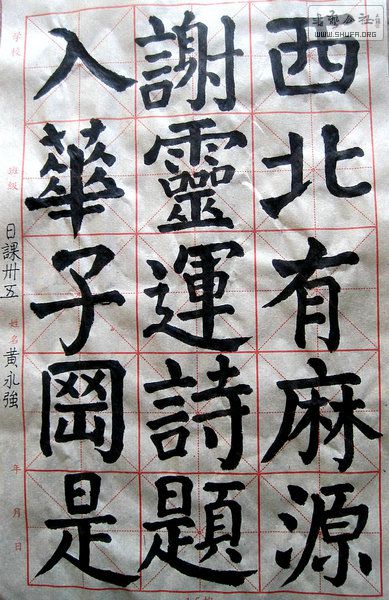 西北有麻源
謝靈運詩題
入華子岡是
日課卅五
黄永強
學校
班級
姓名
年月日
WWW.SHUFA.ORG